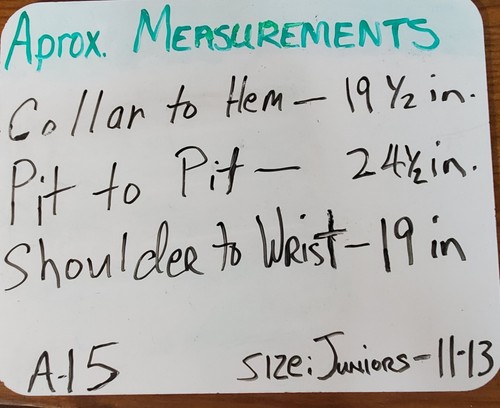 Aprox. MEASUREMENTS
Collar to Hem - 19 1/2 in.
Pit to Pit - 24 1/2 in.
Shoulder to Wrist - 19 in
A-15 Size: Juniors - 11-13